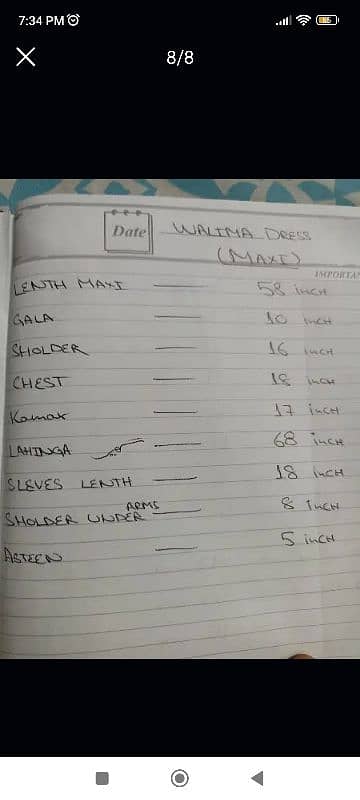 7:34 PM
8/8
Date WALIMA DRESS
(MAXI)
LENTH MAXI — 58 inch
GALA — 10 inch
SHOLDER — 16 inch
CHEST — 18 inch
Kamar — 17 inch
LAHINGA — 68 inch
SLEVES LENTH — 18 inch
SHOLDER UNDER ARMS — 8 inch
ASTEEN — 5 inch